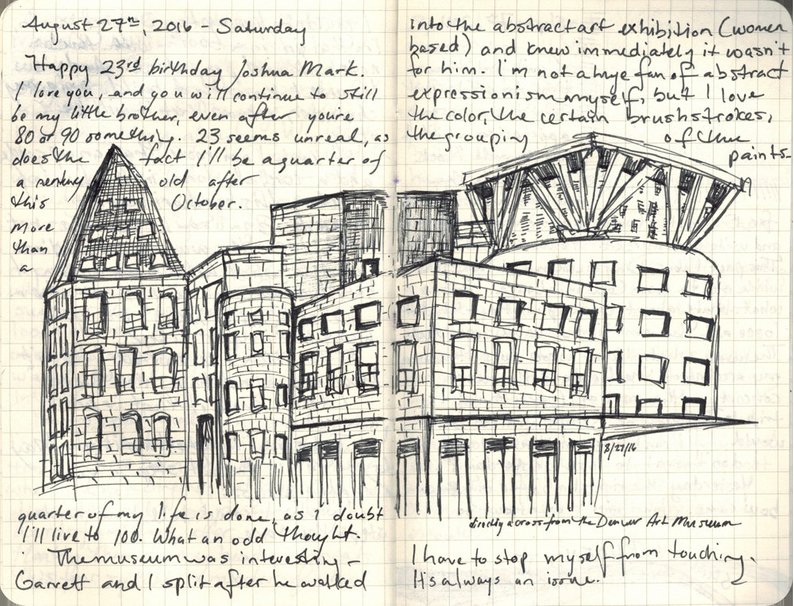 August 27th, 2016 - Saturday
Happy 23rd birthday Joshua Mark.
I love you, and you will continue to still
be my little brother, even after you're
80 or 90 something. 23 seems unreal, as
does the fact I'll be a quarter of
a century old after
this October.
more
than
a
quarter of my life is done, as I doubt
I'll live to 100. What an odd thought.
The museum was interesting -
Garrett and I split after he walked
into the abstract art exhibition (women
based) and knew immediately it wasn't
for him. I'm not a huge fan of abstract
expressionism myself, but I love
the color, the certain brushstrokes,
the grouping of the
paints-
8/27/16
directly across from the Denver Art Museum
I have to stop myself from touching.
It's always an issue.